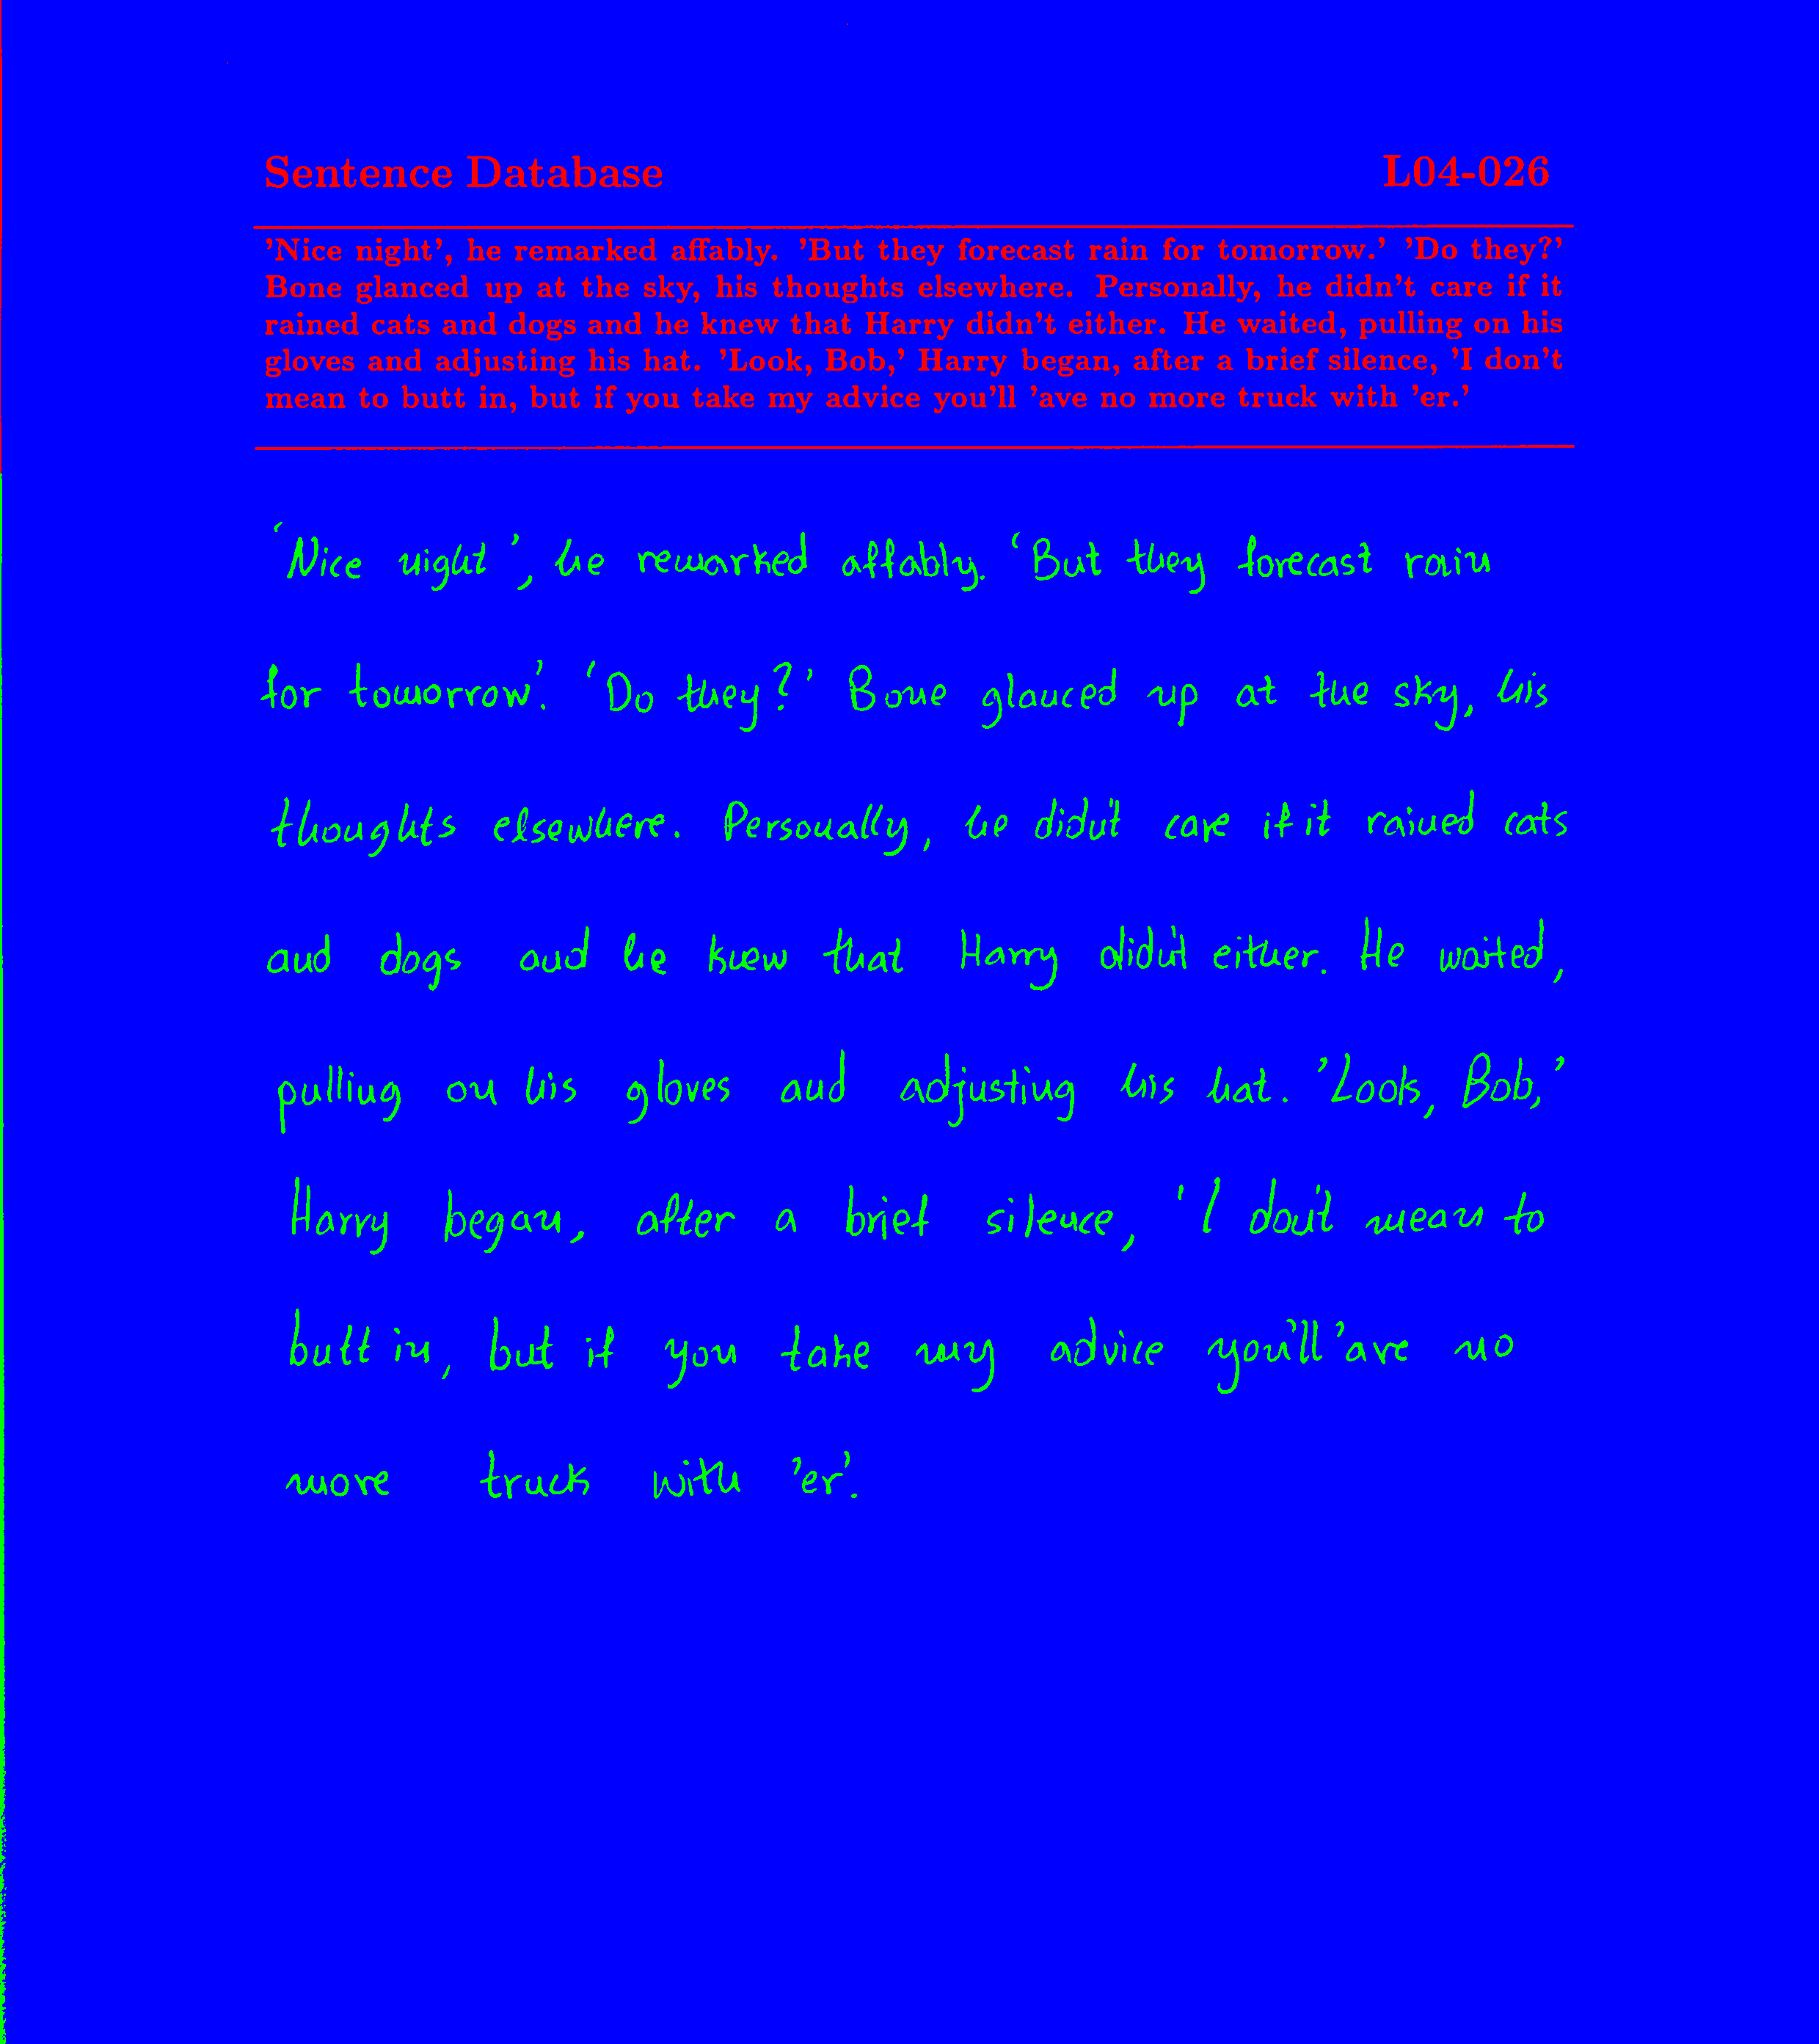 Sentence Database L04-026
'Nice night', he remarked affably. 'But they forecast rain for tomorrow.' 'Do they?'
Bone glanced up at the sky, his thoughts elsewhere. Personally, he didn't care if it
rained cats and dogs and he knew that Harry didn't either. He waited, pulling on his
gloves and adjusting his hat. 'Look, Bob,' Harry began, after a brief silence, 'I don't
mean to butt in, but if you take my advice you'll 'ave no more truck with 'er.'
'Nice night', he remarked affably. 'But they forecast rain
for tomorrow.' 'Do they?' Bone glanced up at the sky, his
thoughts elsewhere. Personally, he didn't care if it rained cats
and dogs and he knew that Harry didn't either. He waited,
pulling on his gloves and adjusting his hat. 'Look, Bob,'
Harry began, after a brief silence, 'I don't mean to
butt in, but if you take my advice you'll 'ave no
more truck with 'er'.